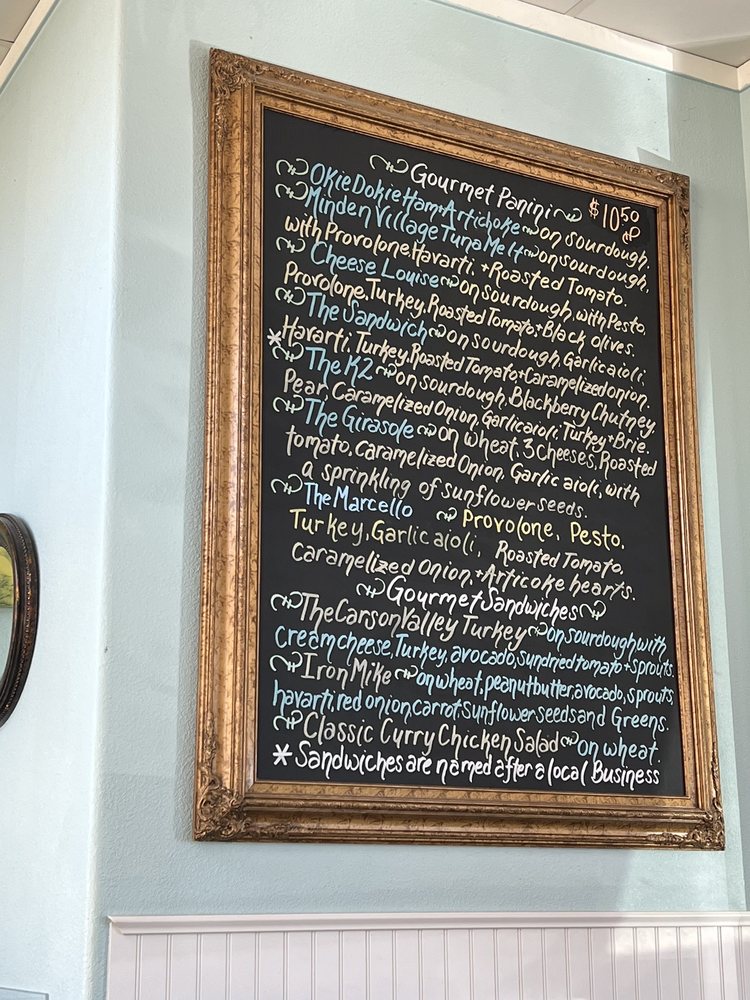 Gourmet Panini $10.50
Okie Dokie Ham + Artichoke on sourdough,
Minden Village Tuna Melt on sourdough,
with Provolone, Havarti, + Roasted Tomato.
Cheese Louise on sourdough, with Pesto,
Provolone, Turkey, Roasted Tomato + Black olives.
The Sandwich on sourdough, Garlic aioli,
* Havarti, Turkey, Roasted Tomato + Caramelized onion,
The K2 on sourdough, Blackberry Chutney,
Pear, Caramelized Onion, Garlic aioli, Turkey + Brie.
The Girasole on wheat, 3 cheeses, Roasted
tomato, caramelized Onion, Garlic aioli, with
a sprinkling of sunflower seeds.
The Marcello Provolone, Pesto,
Turkey, Garlic aioli, Roasted Tomato,
Caramelized Onion, + Articoke hearts.
Gourmet Sandwiches
The Carson Valley Turkey on sourdough with
cream cheese, Turkey, avocado, sundried tomato + sprouts.
Iron Mike on wheat, peanut butter, avocado, sprouts,
havarti, red onion, carrot, sunflower seeds and Greens.
Classic Curry Chicken Salad on wheat.
* Sandwiches are named after a local Business